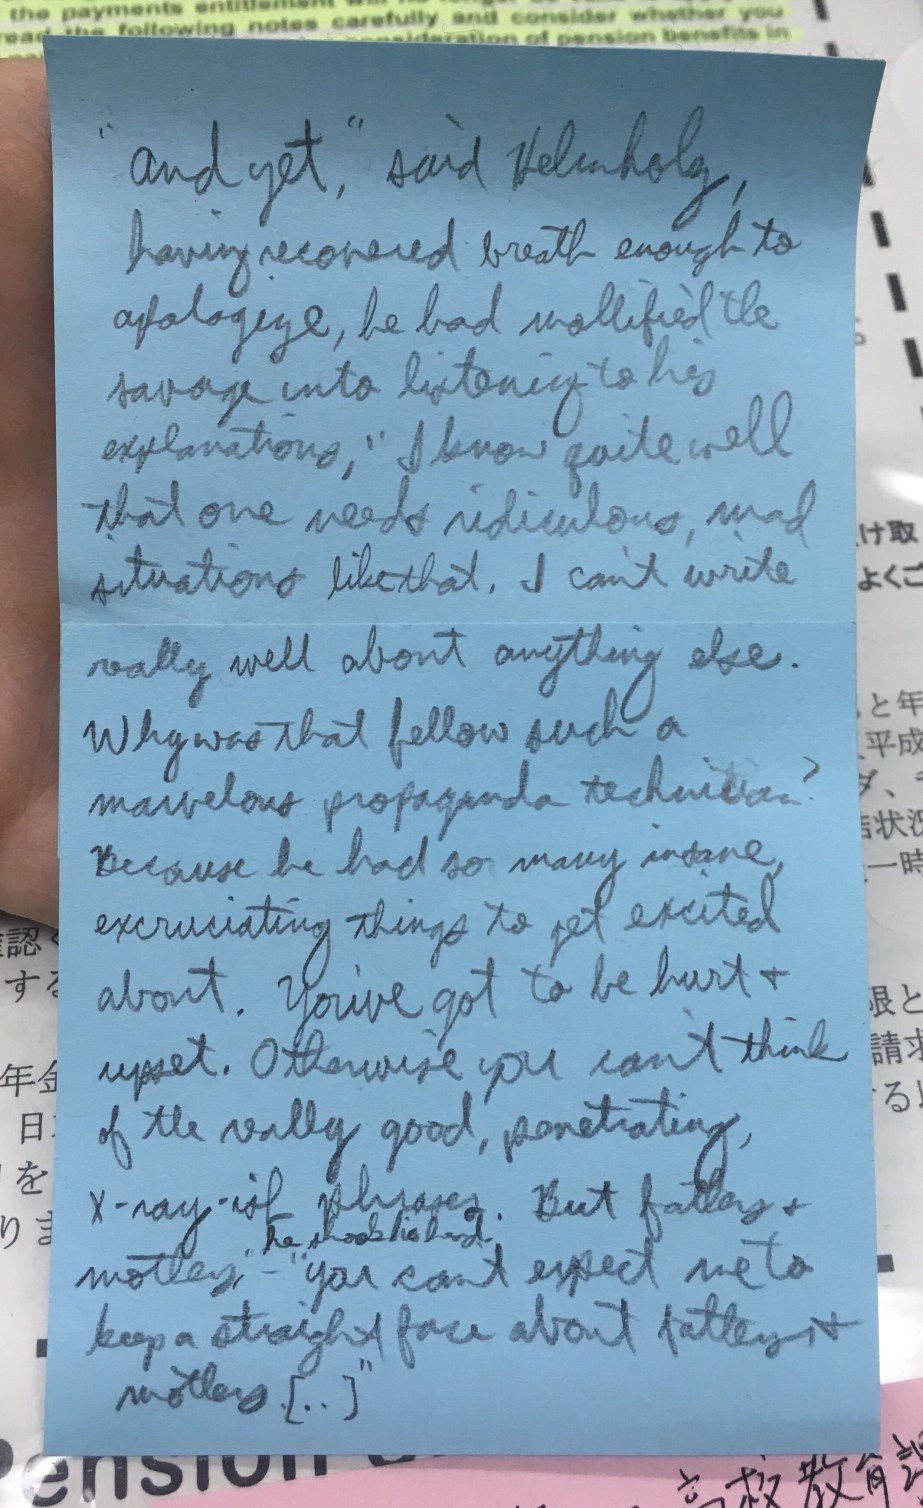 the payments entitlement will no longer be
read the following notes carefully and consider whether you
consideration of pension benefits in
"And yet," said Helmholtz,
having recovered breath enough to
apologize, he had mollified the
savage into listening to his
explanations, "I know quite well
that one needs ridiculous, mad
situations like that. I can't write
really well about anything else.
Why was that fellow such a
marvelous propaganda technician?
Because he had so many insane,
excruciating things to get excited
about. You've got to be hurt +
upset. Otherwise you can't think
of the really good, penetrating,
X-ray-ish phrases. But fathers +
he shook his head.
mothers," - "you can't expect me to
keep a straight face about fathers +
mothers [..]"
け取
よくご
と年
平成
状況
一時
認
する
年金
日
を
りま
限と
請求
る
Pension
高校教育課